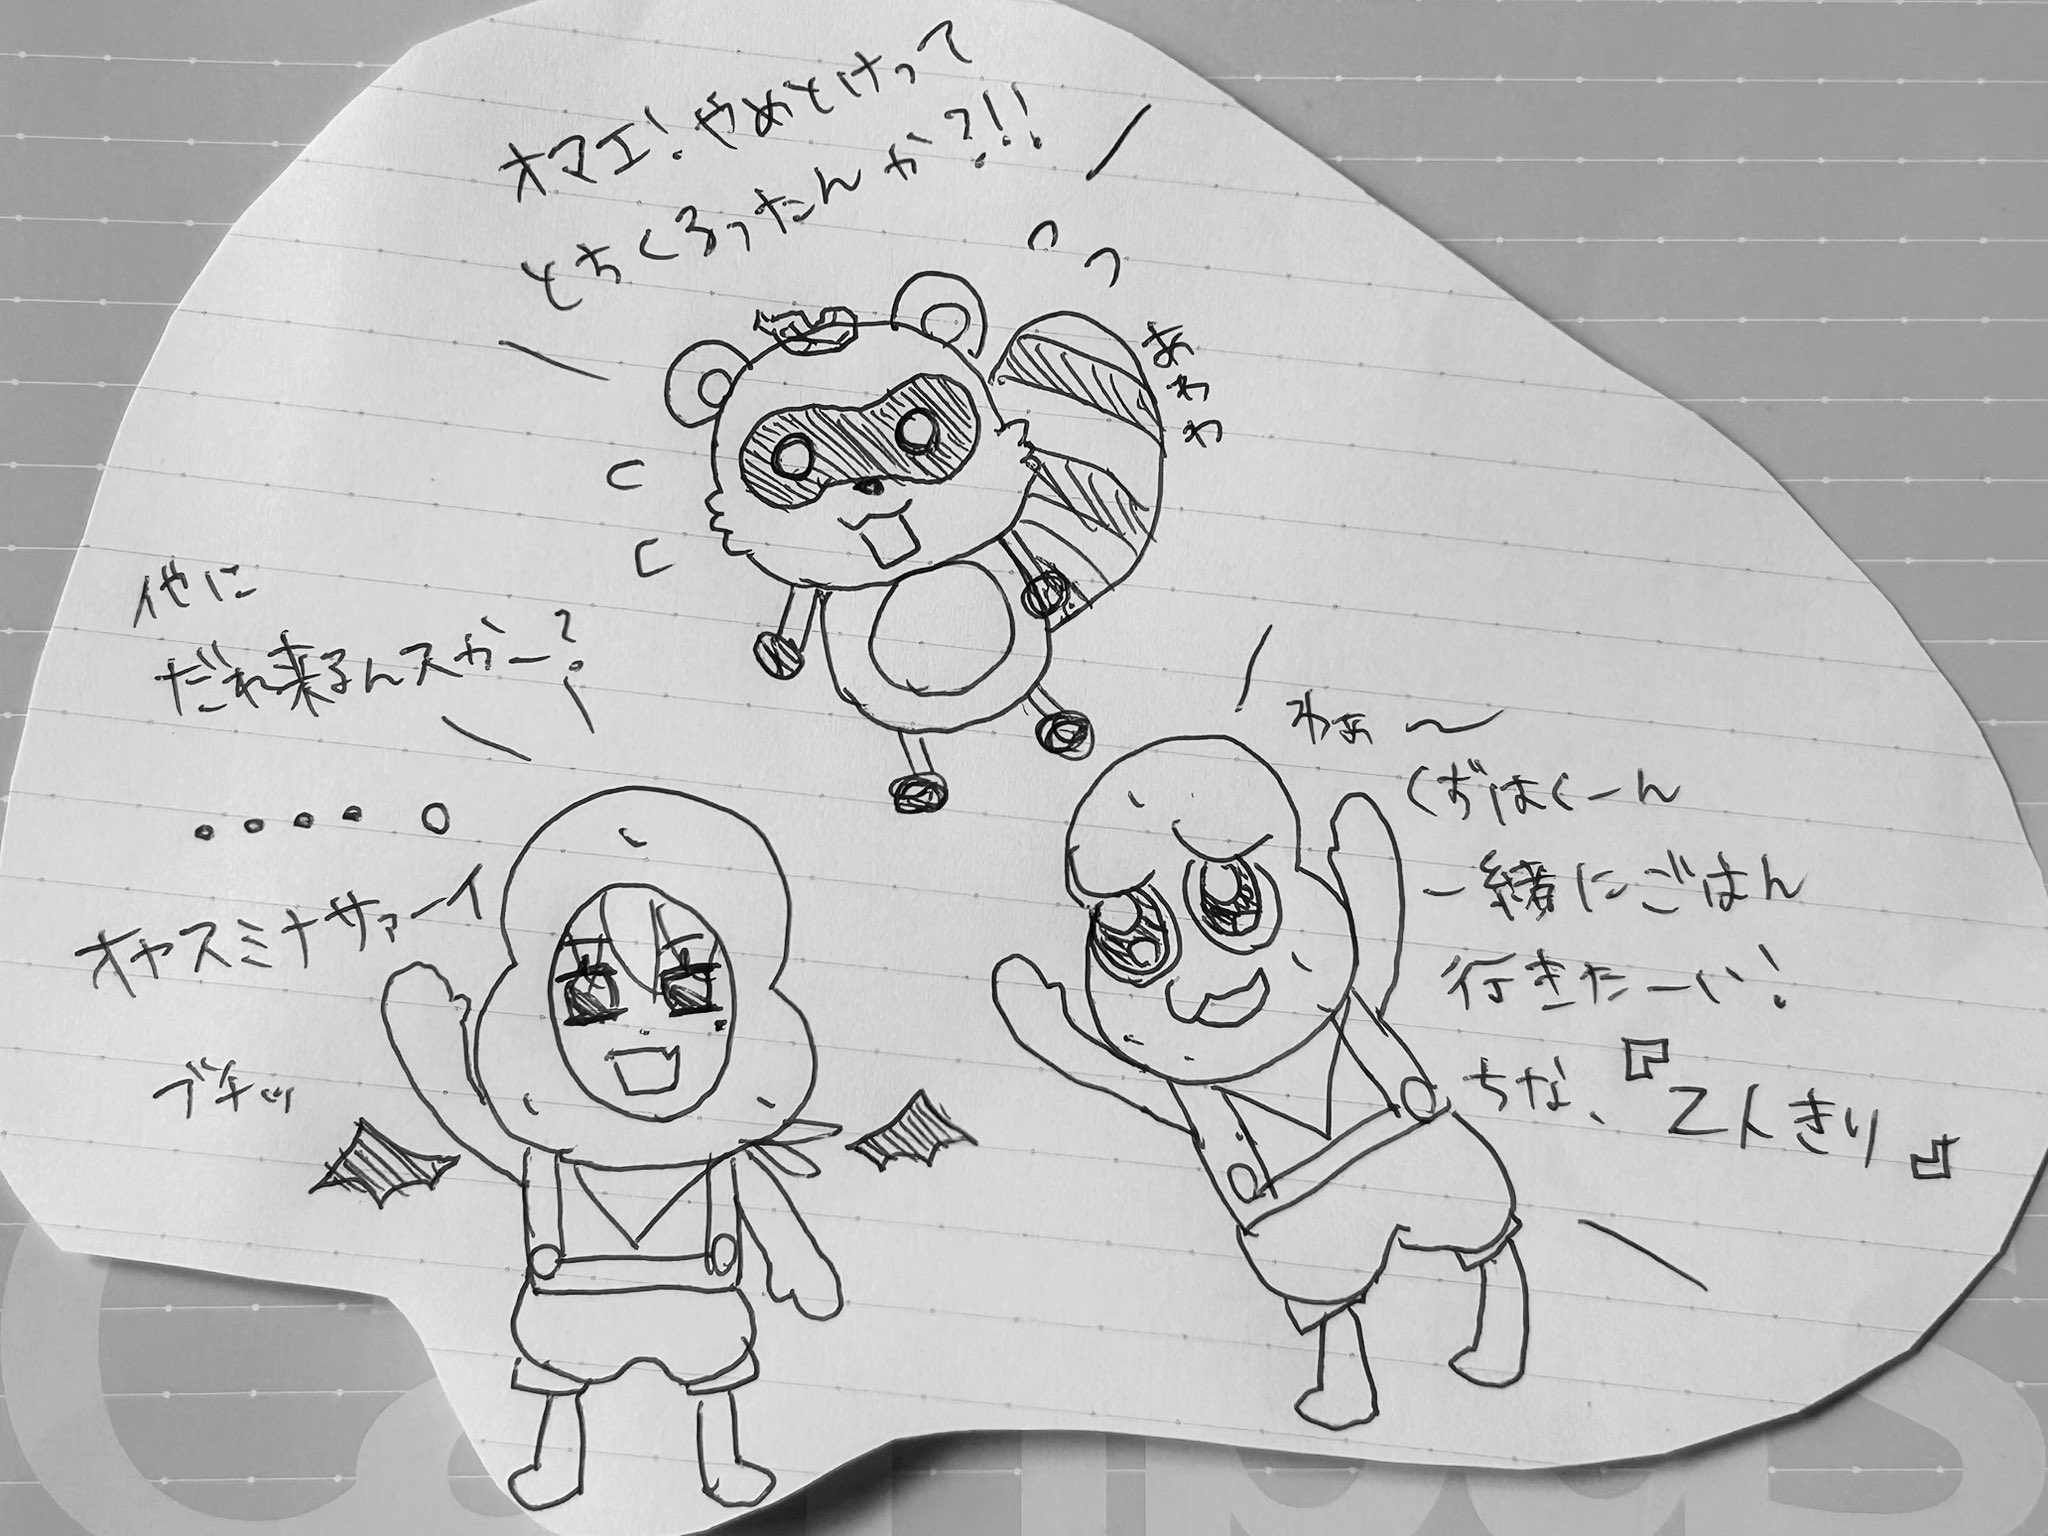 オマエ!やめとけって
とちくるったんか?!!
あわわ
他に
だれ来るんスかー?
オヤスミナサァーイ
ブチッ
わぁ〜
くずはくーん
一緒にごはん
行きたーい!
ちな、『2人きり』
Campus